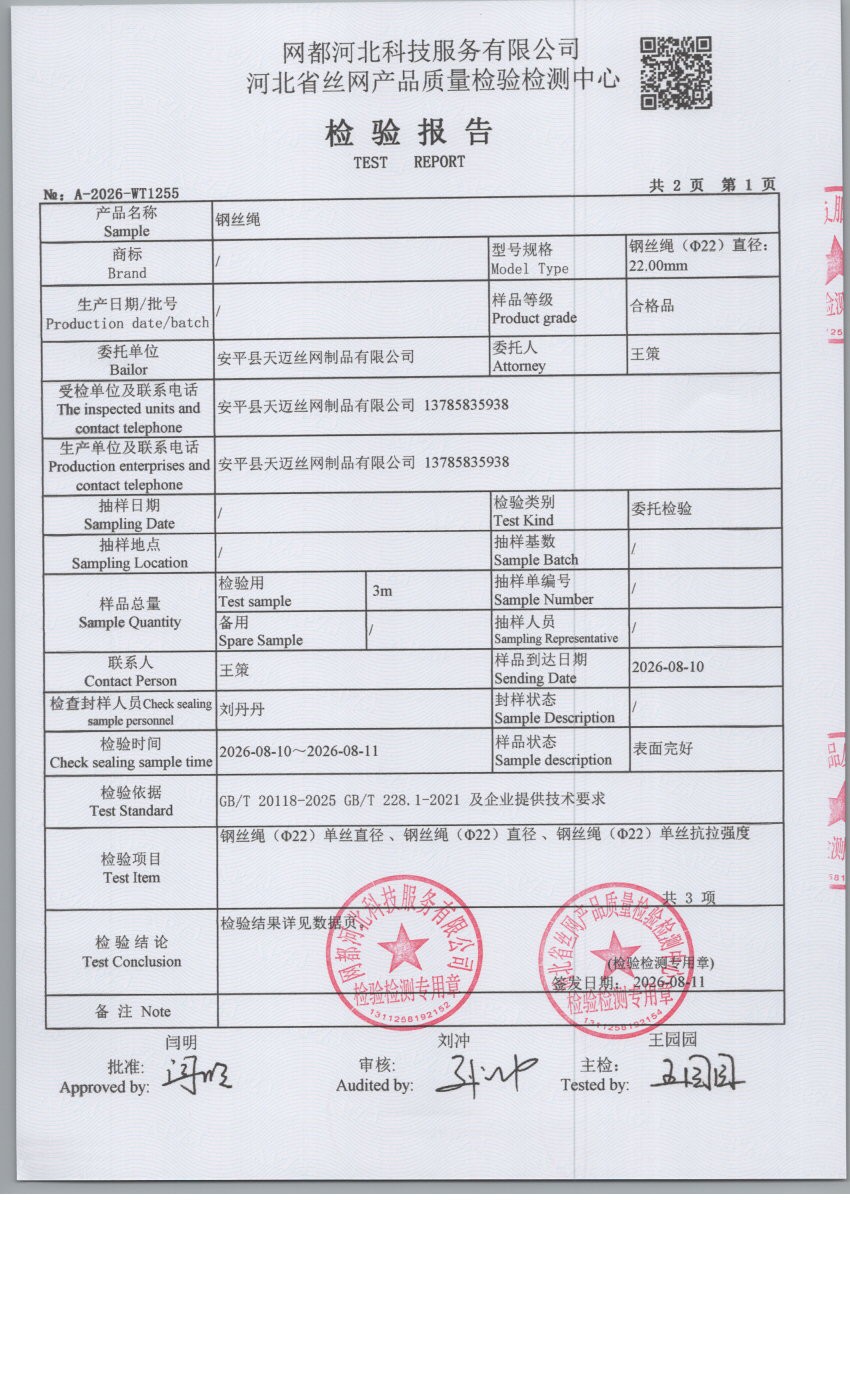 网都河北科技服务有限公司
河北省丝网产品质量检验检测中心
检验报告
TEST REPORT
№: A-2026-WT1255
共 2 页 第 1 页
产品名称
Sample
钢丝绳
商标
Brand
/
型号规格
Model Type
钢丝绳（Φ22）直径：
22.00mm
生产日期/批号
Production date/batch
/
样品等级
Product grade
合格品
委托单位
Bailor
安平县天迈丝网制品有限公司
委托人
Attorney
王策
受检单位及联系电话
The inspected units and
contact telephone
安平县天迈丝网制品有限公司 13785835938
生产单位及联系电话
Production enterprises and
contact telephone
安平县天迈丝网制品有限公司 13785835938
抽样日期
Sampling Date
/
检验类别
Test Kind
委托检验
抽样地点
Sampling Location
/
抽样基数
Sample Batch
/
样品总量
Sample Quantity
检验用
Test sample
3m
抽样单编号
Sample Number
/
备用
Spare Sample
/
抽样人员
Sampling Representative
/
联系人
Contact Person
王策
样品到达日期
Sending Date
2026-08-10
检查封样人员Check sealing
sample personnel
刘丹丹
封样状态
Sample Description
/
检验时间
Check sealing sample time
2026-08-10～2026-08-11
样品状态
Sample description
表面完好
检验依据
Test Standard
GB/T 20118-2025 GB/T 228.1-2021 及企业提供技术要求
检验项目
Test Item
钢丝绳（Φ22）单丝直径、钢丝绳（Φ22）直径、钢丝绳（Φ22）单丝抗拉强度
共 3 项
检验结论
Test Conclusion
检验结果详见数据页。
(检验检测专用章)
签发日期： 2026-08-11
网都河北科技服务有限公司
检验检测专用章
1311258192152
河北省丝网产品质量检验检测中心
检验检测专用章
1311258192154
备 注 Note
闫明
刘冲
王园园
批准:
Approved by:
闫明
审核:
Audited by:
刘冲
主检：
Tested by:
王园园